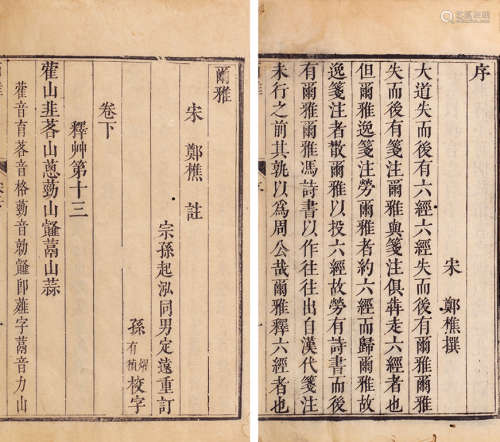 序
宋 鄭樵撰
大道失而後有六經六經失而後有爾雅爾雅
失而後有箋注爾雅與箋注俱犇走六經者也
但爾雅逸箋注勞爾雅者約六經而歸爾雅故
逸箋注者散爾雅以投六經故勞有詩書而後
有爾雅爾雅馮詩書以作往往出自漢代箋注
未行之前其孰以為周公哉爾雅釋六經者也
爾雅
宋 鄭樵 註
宗孫起泓同男定遠重訂
孫 有 校字
卷下
釋艸第十三
蒮山韭茖山蔥葝山䪥蒚山蒜
蒮音育茖音格葝音勍䪥卽薤字蒚音力山